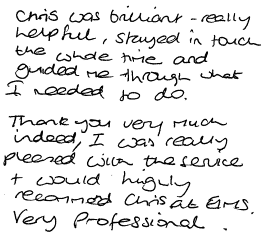 Chris was brilliant - really
helpful, stayed in touch
the whole time and
guided me through what
I needed to do.
Thank you very much
indeed, I was really
pleased with the service
+ would highly
recommend Chris at EIMS.
Very Professional.